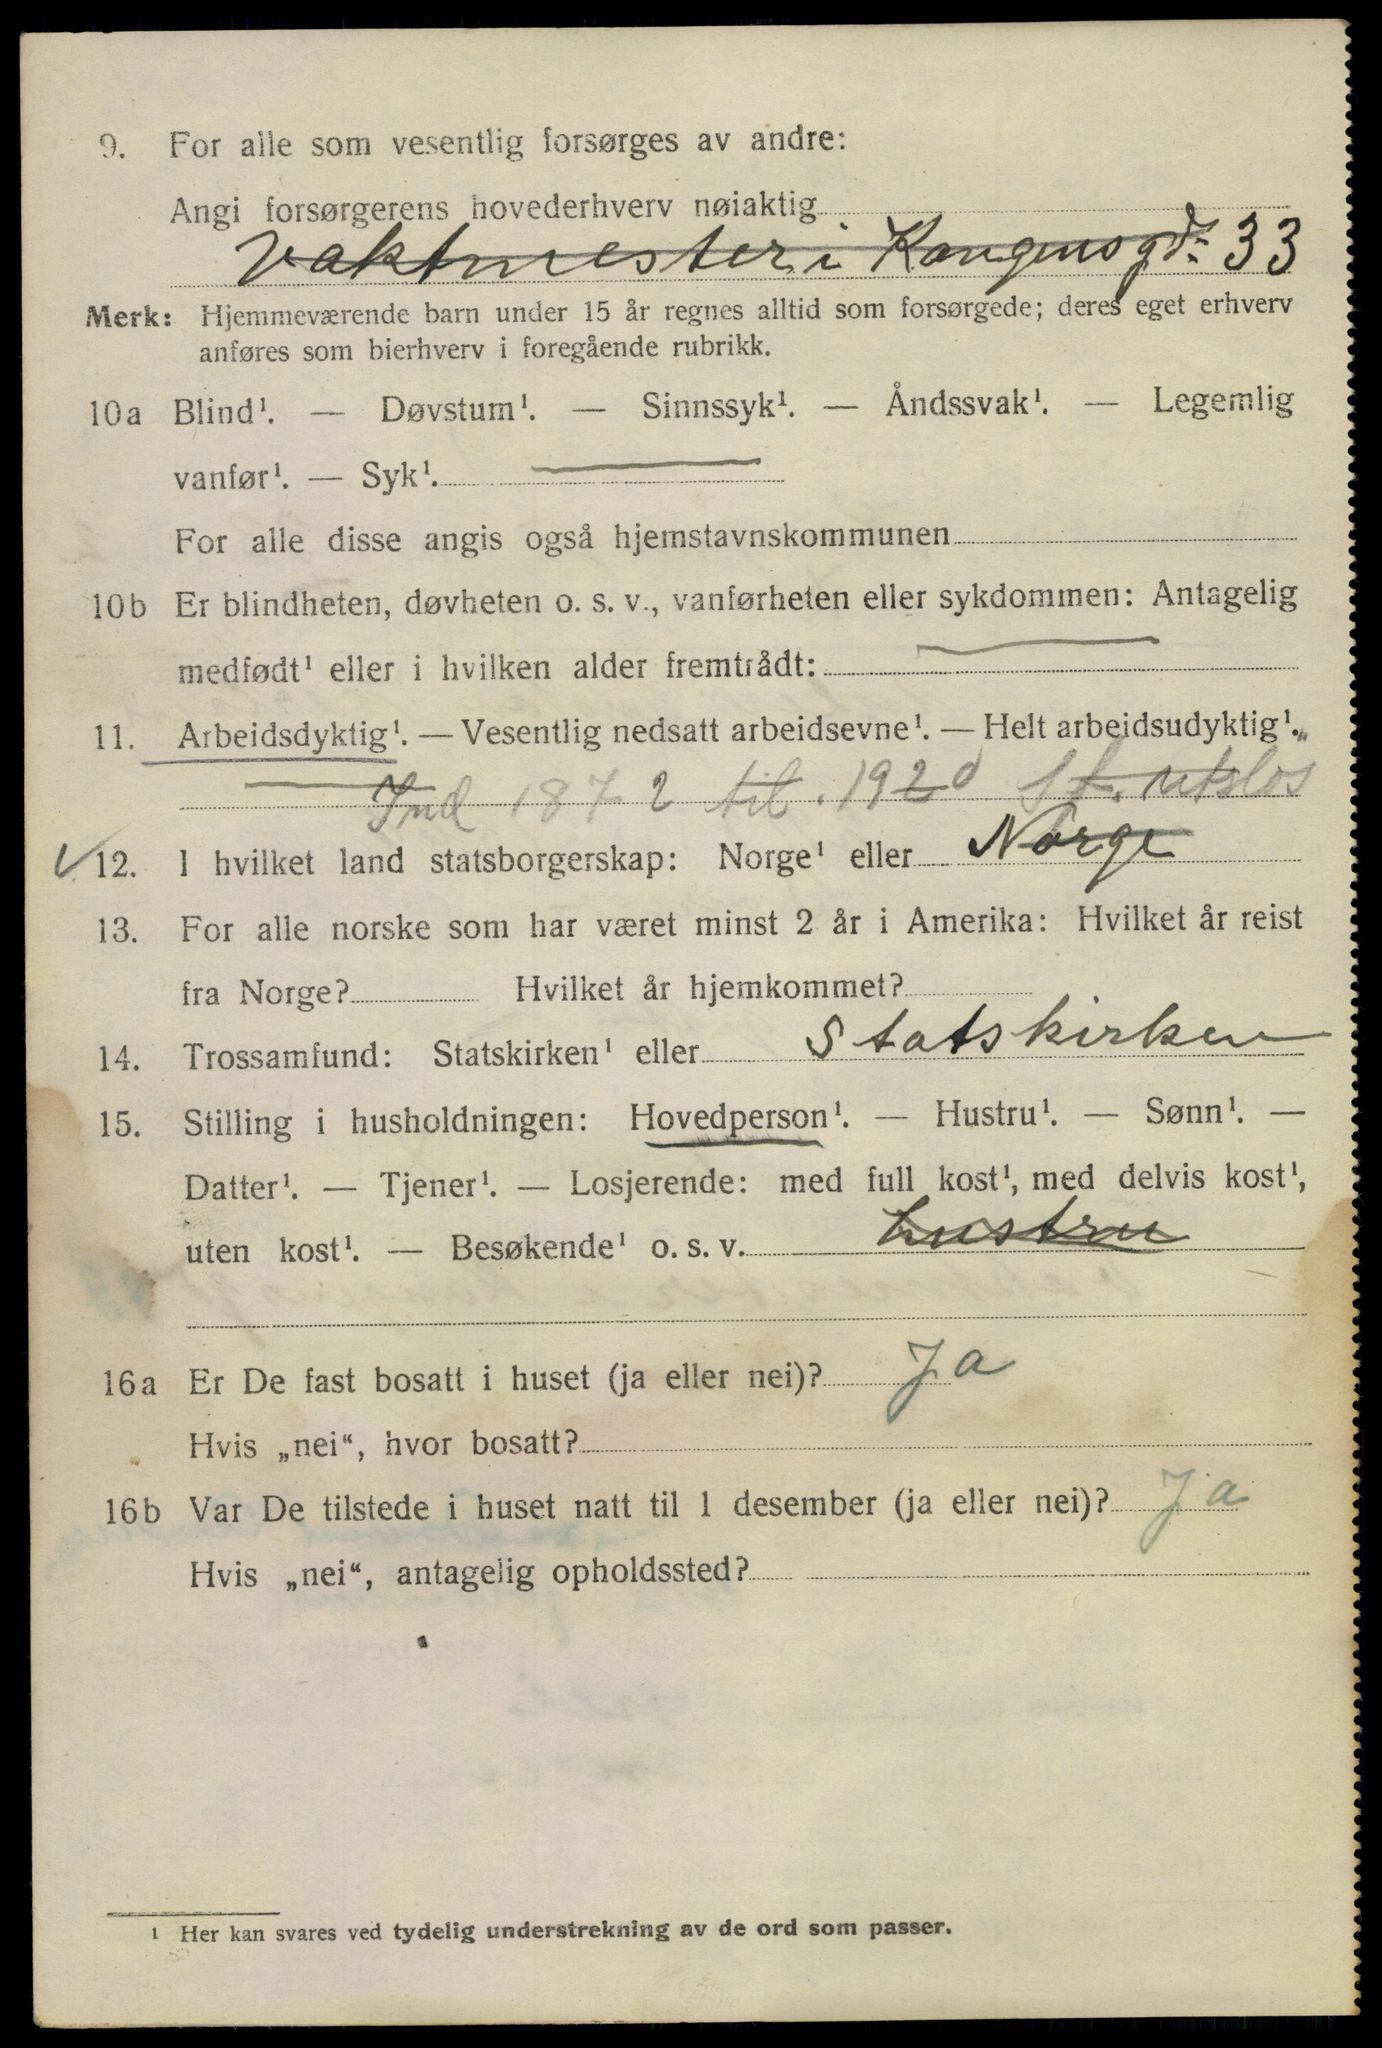 9. For alle som vesentlig forsørges av andre:
Angi forsørgerens hovederhverv nøiaktig
Vaktmester i Kongensgd. 33
Merk: Hjemmeværende barn under 15 år regnes alltid som forsørgede; deres eget erhverv
anføres som bierhverv i foregående rubrikk.
10a Blind¹. — Døvstum¹. — Sinnssyk¹. — Åndssvak¹. — Legemlig
vanfør¹. — Syk¹.
For alle disse angis også hjemstavnskommunen
10b Er blindheten, døvheten o. s. v., vanførheten eller sykdommen: Antagelig
medfødt¹ eller i hvilken alder fremtrådt:
11. Arbeidsdyktig¹. — Vesentlig nedsatt arbeidsevne¹. — Helt arbeidsudyktig¹.
Ind 1872 til. 1920 St.
✓ 12. I hvilket land statsborgerskap: Norge¹ eller Norge
13. For alle norske som har været minst 2 år i Amerika: Hvilket år reist
fra Norge? Hvilket år hjemkommet?
14. Trossamfund: Statskirken¹ eller Statskirken
15. Stilling i husholdningen: Hovedperson¹. — Hustru¹. — Sønn¹. —
Datter¹. — Tjener¹. — Losjerende: med full kost¹, med delvis kost¹,
uten kost¹. — Besøkende¹ o. s. v. hustru
16a Er De fast bosatt i huset (ja eller nei)? Ja
Hvis „nei“, hvor bosatt?
16b Var De tilstede i huset natt til 1 desember (ja eller nei)? Ja
Hvis „nei“, antagelig opholdssted?
¹ Her kan svares ved tydelig understrekning av de ord som passer.